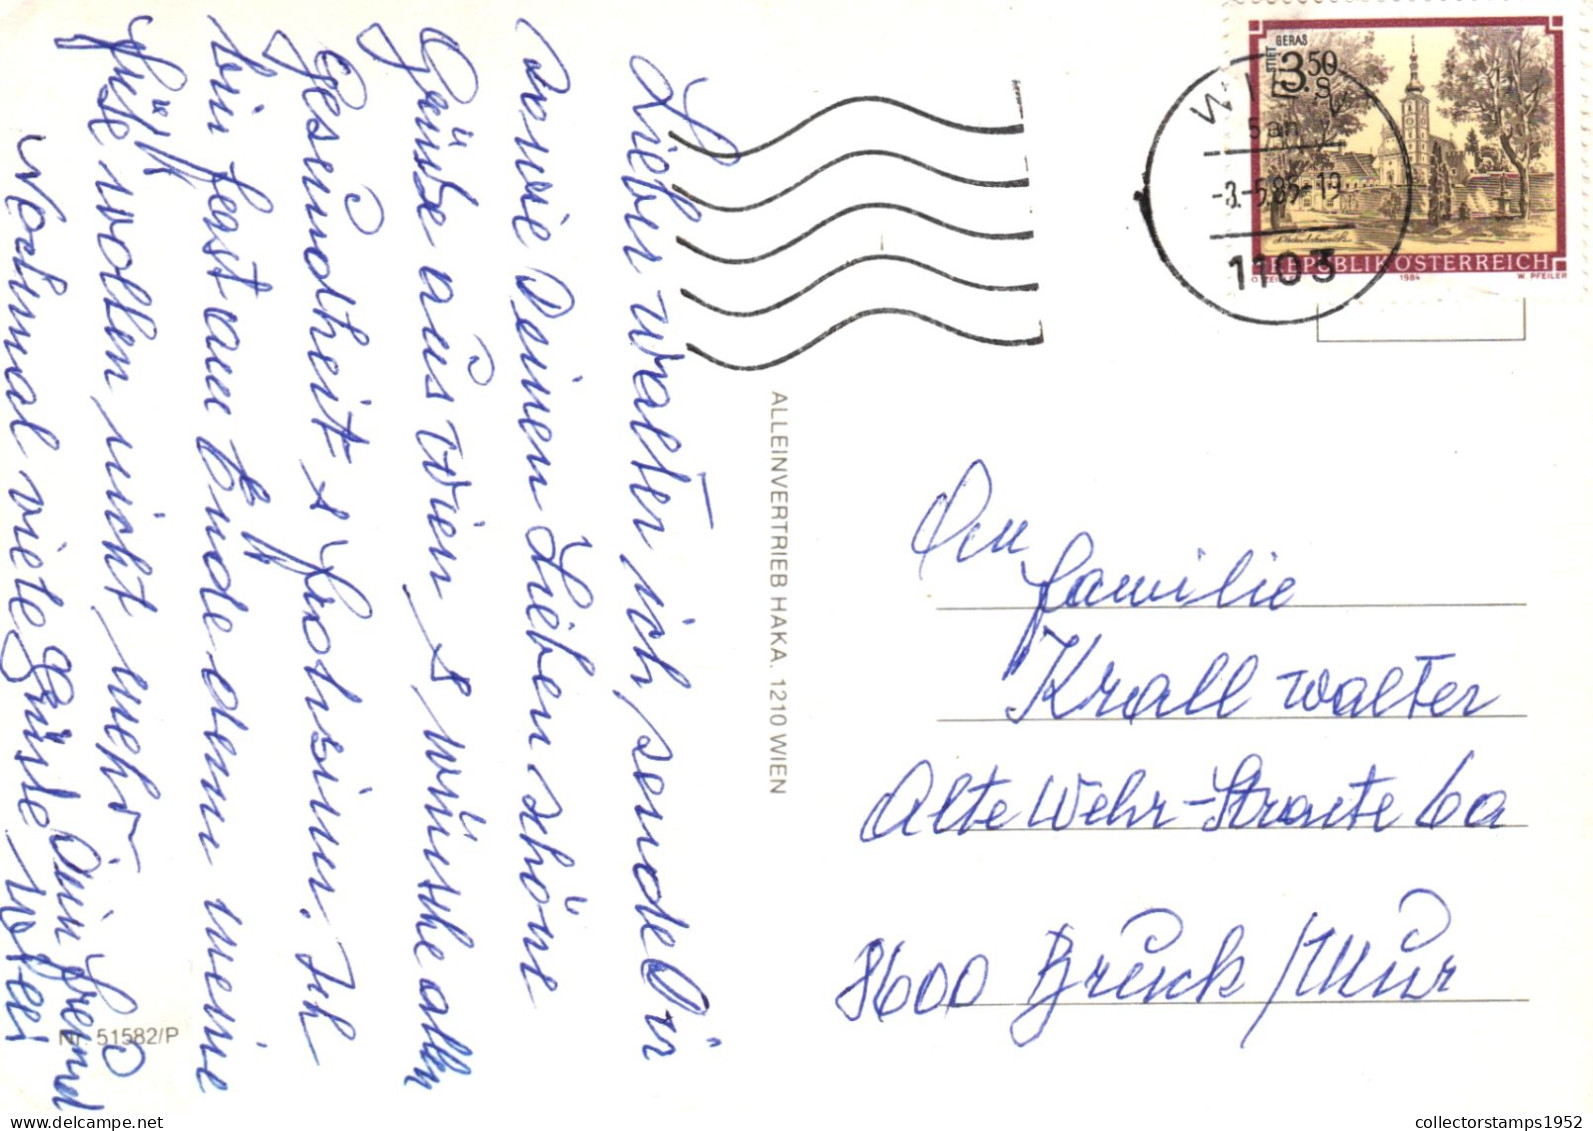 Lieber Walter ich sende Dir
sowie Deinen Lieben schöne
Grüße aus Wien & wünsche allen
Gesundheit & Frohsinn. Ich
bin fast am Ende denn meine
Füße wollen nicht mehr
Nochmal viele Grüße
Dein Freund
ALLEINVERTRIEB HAKA. 1210 WIEN
Nr. 51582/P
STIFT GERAS
3.50
S
REPUBLIK ÖSTERREICH
1984
W. PFEILER
WIEN
-3.-5.85-19
1103
An
Familie
Krall Walter
Alte Wehr-Straße 6a
8600 Bruck/Mur
collectorstamps1952